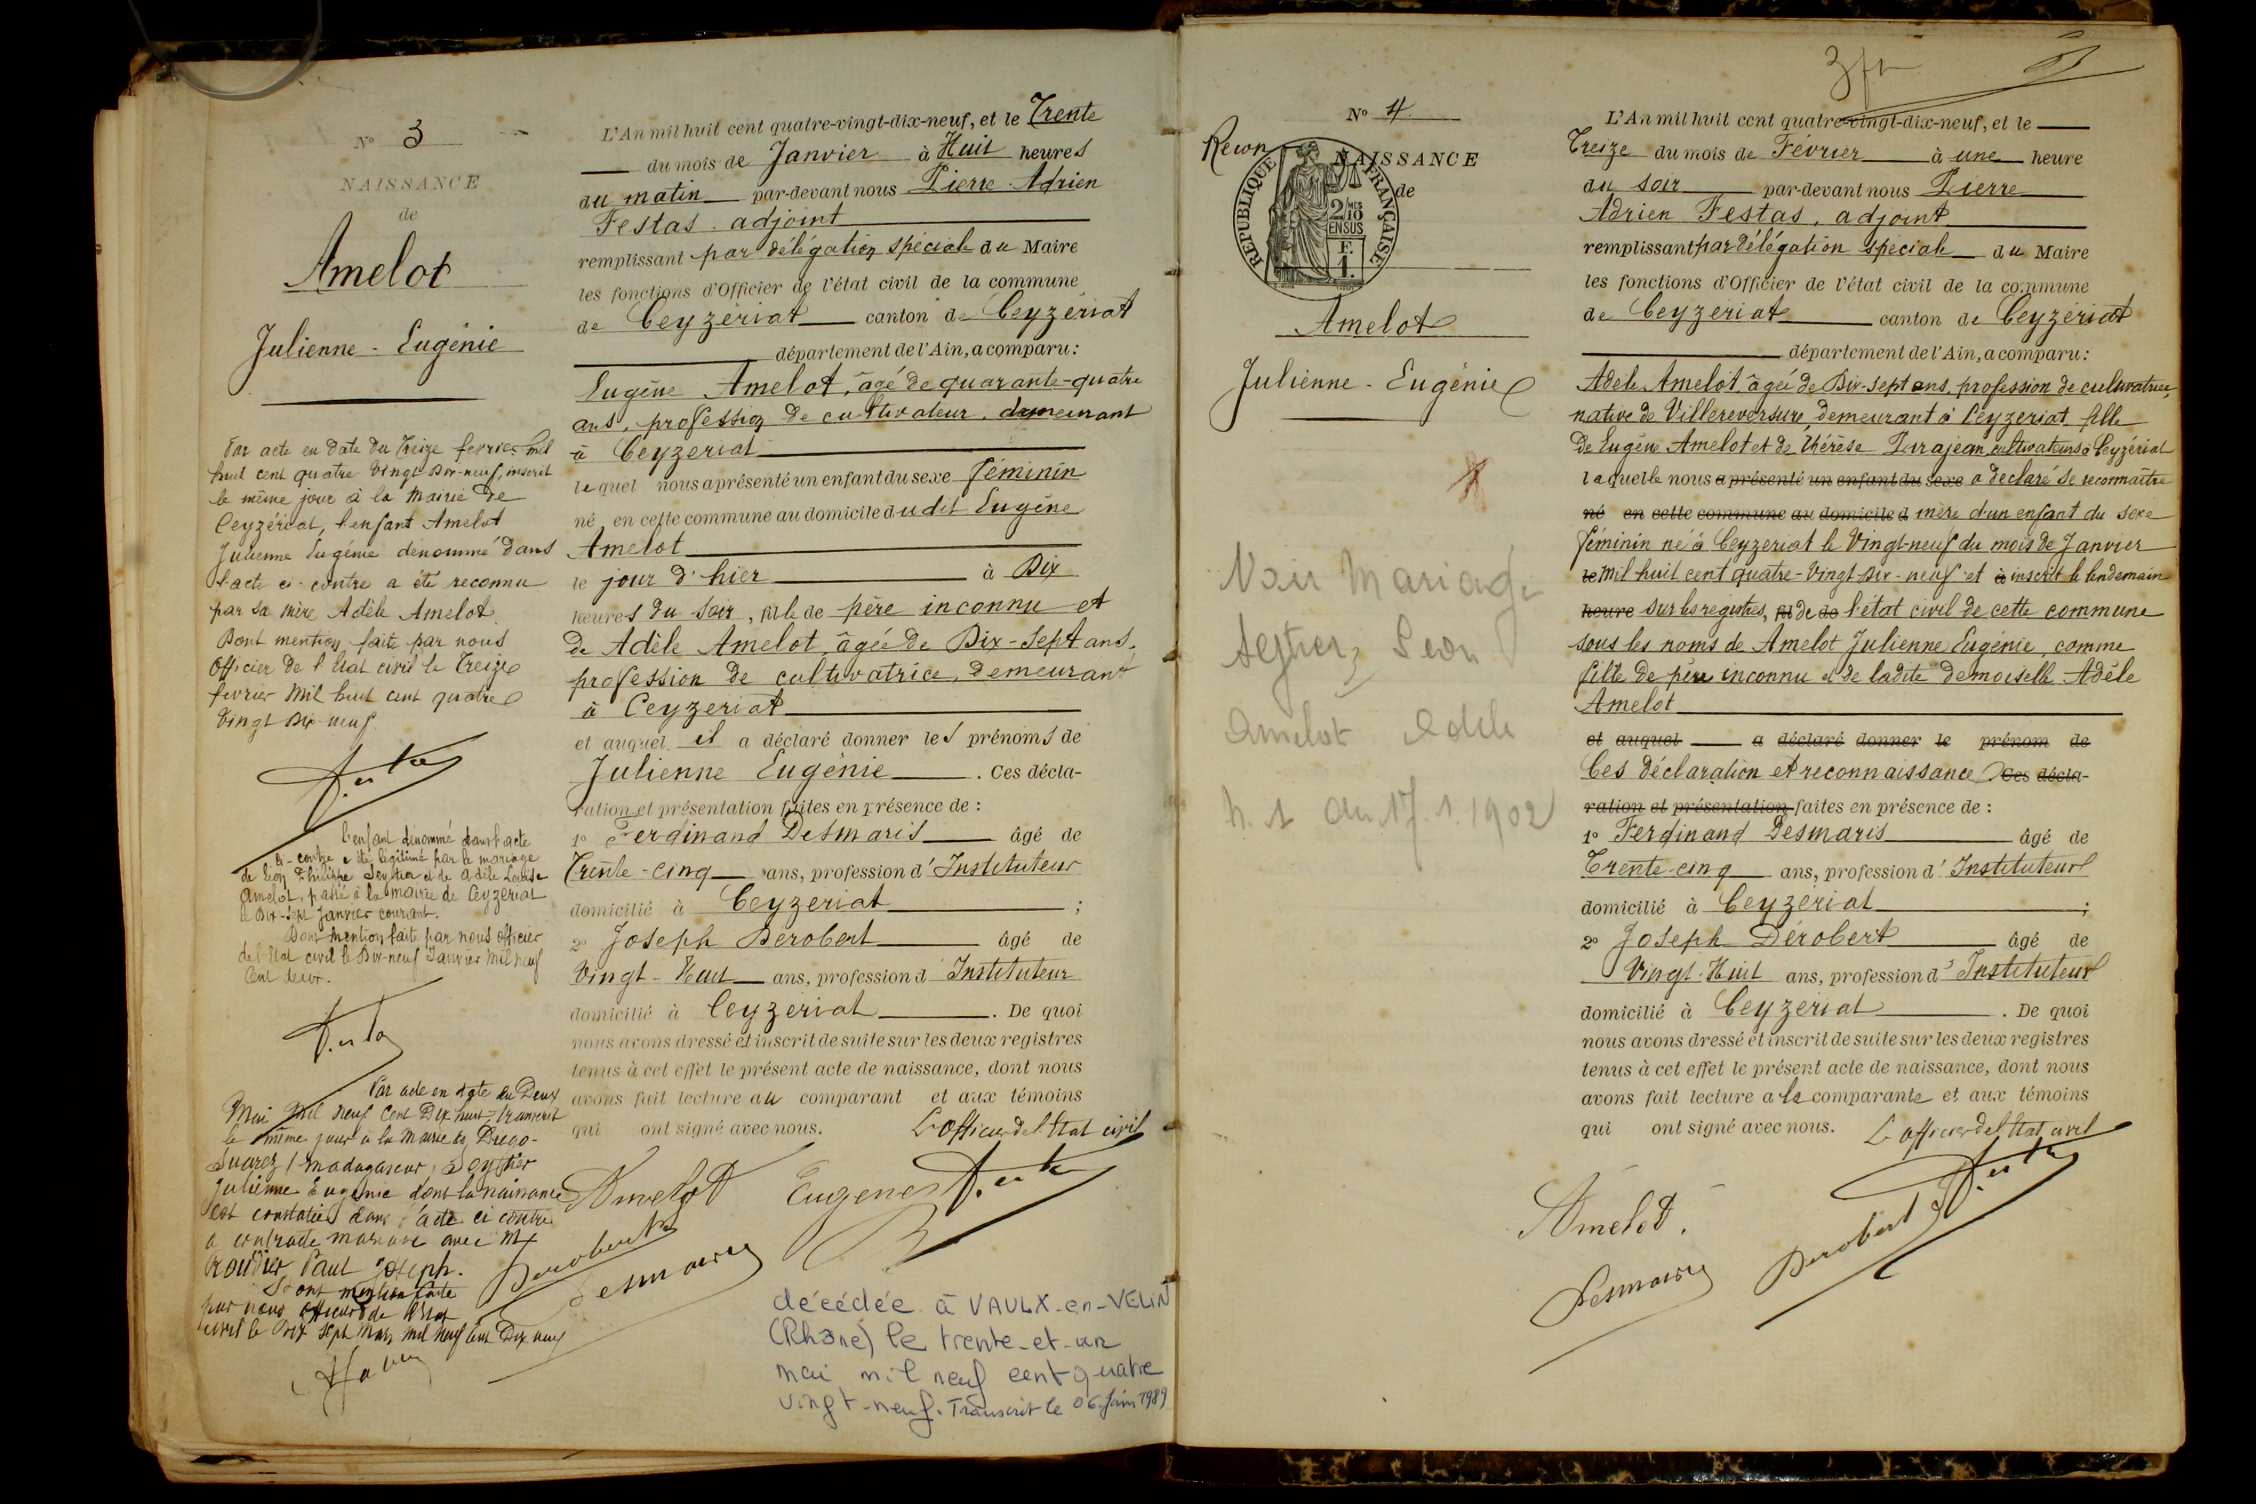 N° 3
NAISSANCE
de
Amelot
Julienne - Eugénie
Par acte en date du Treize fevrier mil
huit cent quatre Vingt Dix-neuf, inscrit
le même jour à la Mairie de
Ceyzériat, l'enfant Amelot
Julienne Eugénie dénommé dans
l'acte ci-contre a été reconnu
par sa mère Adèle Amelot.
Dont mention faite par nous
Officier de l'Etat civil le Treize
fevrier Mil huit cent quatre
Vingt Dix-neuf
l'enfant dénommé dans l'acte
ci-contre a été légitimé par le mariage
de Léon Philippe et de Adèle Louise
Amelot, passé à la mairie de Ceyzeriat
le Dix-Sept Janvier courant.
Dont mention faite par nous officier
de l'Etat civil le Dix-neuf Janvier Mil neuf
Cent deux.
Par acte en date du Deux
Mai Mil neuf Cent Dix huit, transcrit
le même jour à la Mairie de Diego-
Suarez (Madagascar),
Julienne Eugénie dont la naissance
est constatée dans l'acte ci contre
a contracté mariage avec Mr
Paul Joseph.
Dont mention faite
par nous officier de l'Etat
civil le Dix sept Mars mil neuf cent Dix neuf
L'An mil huit cent quatre-vingt-dix-neuf, et le Trente
du mois de Janvier à Huit heures
du matin par-devant nous Pierre Adrien
Festas. adjoint
remplissant par délégation spéciale du Maire
les fonctions d'Officier de l'état civil de la commune
de Ceyzériat canton de Ceyzériat
département de l'Ain, a comparu:
Eugène Amelot, âgé de quarante-quatre
ans, profession de cultivateur, demeurant
à Ceyzeriat
lequel nous a présenté un enfant du sexe féminin
né en cette commune au domicile dudit Eugène
Amelot
le jour d'hier à Dix
heures du soir, fille de père inconnu et
de Adèle Amelot, âgée de Dix-Sept ans,
profession de cultivatrice, demeurant
à Ceyzeriat
et auquel il a déclaré donner les prénoms de
Julienne Eugénie. Ces décla-
ration et présentation faites en présence de :
1° Ferdinand Desmaris âgé de
Trente-cinq ans, profession d'Instituteur
domicilié à Ceyzeriat ;
2° Joseph Derobert âgé de
Vingt-Huit ans, profession d'Instituteur
domicilié à Ceyzeriat. De quoi
nous avons dressé et inscrit de suite sur les deux registres
tenus à cet effet le présent acte de naissance, dont nous
avons fait lecture au comparant et aux témoins
qui ont signé avec nous. L'officier de l'Etat civil
Amelot Eugène
Derobert
Desmaris
décédée à VAULX-en-VELIN
(Rhône) le trente-et-un
mai mil neuf cent quatre
vingt-neuf. Transcrit le 06 juin 1989
N° 4
Recon
NAISSANCE
de
RÉPUBLIQUE FRANÇAISE
2/10 MES
EN SUS
F.
1.
Amelot
Julienne - Eugénie
Voir Mariage
Léon
Amelot Adèle
n. 1 du 17.1.1902
L'An mil huit cent quatre-vingt-dix-neuf, et le
Treize du mois de Février à une heure
du soir par-devant nous Pierre
Adrien Festas, adjoint
remplissant par délégation spéciale du Maire
les fonctions d'Officier de l'état civil de la commune
de Ceyzériat canton de Ceyzériat
département de l'Ain, a comparu:
Adèle Amelot, âgée de Dix-sept ans, profession de cultivatrice,
native de Villereversure demeurant à Ceyzeriat fille
de Eugène Amelot et de Thérèse Purajean cultivateurs à Ceyzériat
laquelle nous a présenté un enfant du sexe a declaré se reconnaître
né en cette commune au domicile d mère d'un enfant du sexe
féminin né à Ceyzeriat le Vingt-neuf du mois de Janvier
le Mil huit cent quatre-Vingt Dix-neuf et à inscrit le lendemain
heure sur les registres, fil de de l'état civil de cette commune
sous les noms de Amelot Julienne Eugénie, comme
fille de père inconnu et de ladite demoiselle Adèle
Amelot
et auquel a déclaré donner le prénom de
Ces déclaration et reconnaissance. Ces décla-
ration et présentation faites en présence de :
1° Ferdinand Desmaris âgé de
Trente-cinq ans, profession d'Instituteur
domicilié à Ceyzériat ;
2° Joseph Dérobert âgé de
Vingt-Huit ans, profession d'Instituteur
domicilié à Ceyzeriat. De quoi
nous avons dressé et inscrit de suite sur les deux registres
tenus à cet effet le présent acte de naissance, dont nous
avons fait lecture a la comparante et aux témoins
qui ont signé avec nous. L'officier de l'Etat civil
Amelot.
Desmaris
Derobert